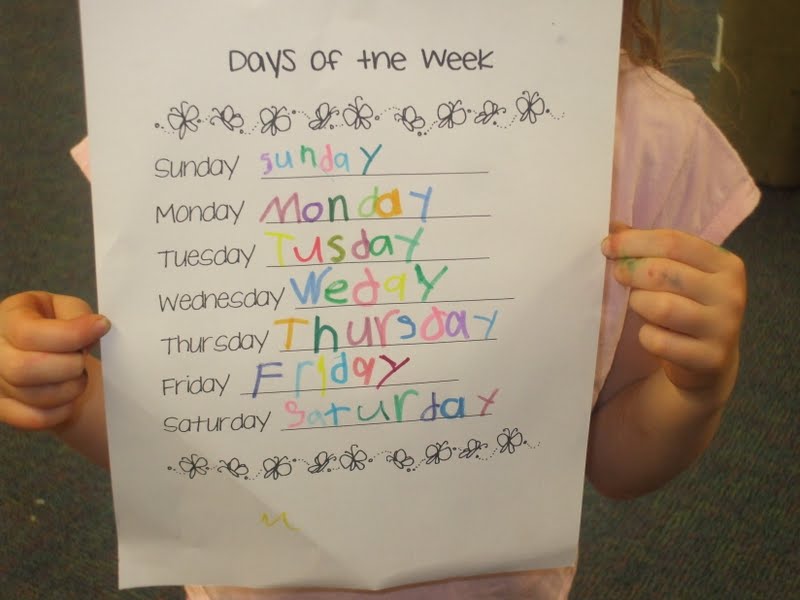 Days of the Week
Sunday sunday
Monday Monday
Tuesday Tusday
Wednesday Weday
Thursday Thursday
Friday Friday
Saturday Saturday